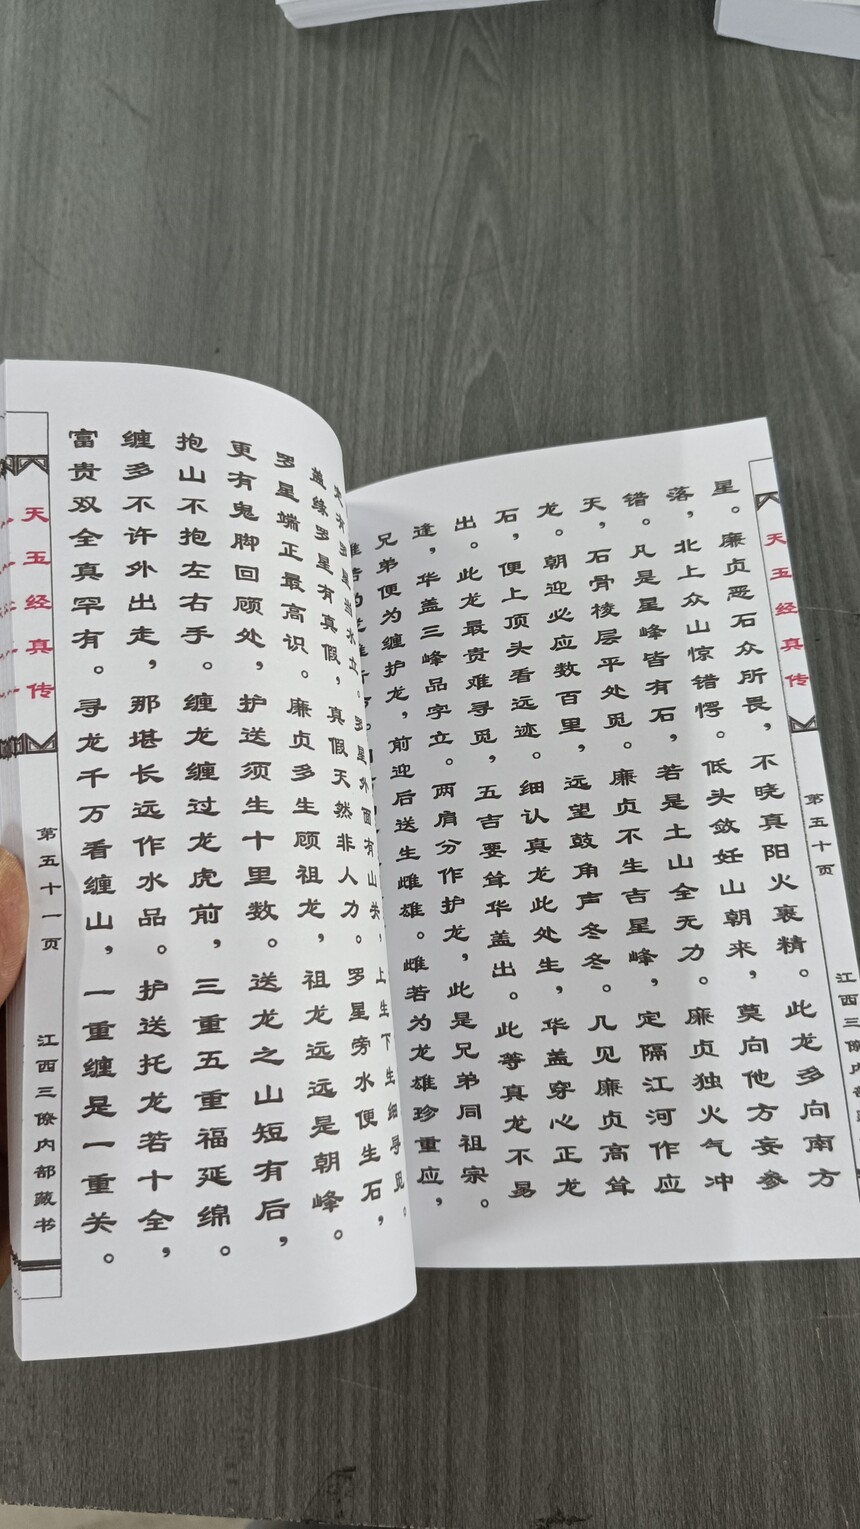 天玉经真传
第五十页
江西三僚内部
星。廉贞恶石众所畏，不晓真阳火裹精。此龙多向南方
落，北上众山惊错愕。低头敛妊山朝来，莫向他方妄参
错。凡是星峰皆有石，若是土山全无力。廉贞独火气冲
天，石骨棱层平处觅。廉贞不生吉星峰，定隔江河作应
龙。朝迎必应数百里，远望鼓角声冬冬。几见廉贞高耸
石，便上顶头看远迹。细认真龙此处生，华盖穿心正龙
出。此龙最贵难寻觅，五吉要耸华盖出。此等真龙不易
逢，华盖三峰品字立。两肩分作护龙，此是兄弟同祖宗。
兄弟便为缠护龙，前迎后送生雌雄。雌若为龙雄珍重应，
有罗星当水立。罗星外面有山关，上生下生细寻觅。
盖缘罗星有真假，真假天然非人力。罗星旁水便生石，
罗星端正最高识。廉贞多生顾祖龙，祖龙远远是朝峰。
更有鬼脚回顾处，护送须生十里数。送龙之山短有后，
抱山不抱左右手。缠龙缠过龙虎前，三重五重福延绵。
缠多不许外出走，那堪长远作水品。护送托龙若十全，
富贵双全真罕有。寻龙千万看缠山，一重缠是一重关。
天玉经真传
第五十一页
江西三僚内部藏书